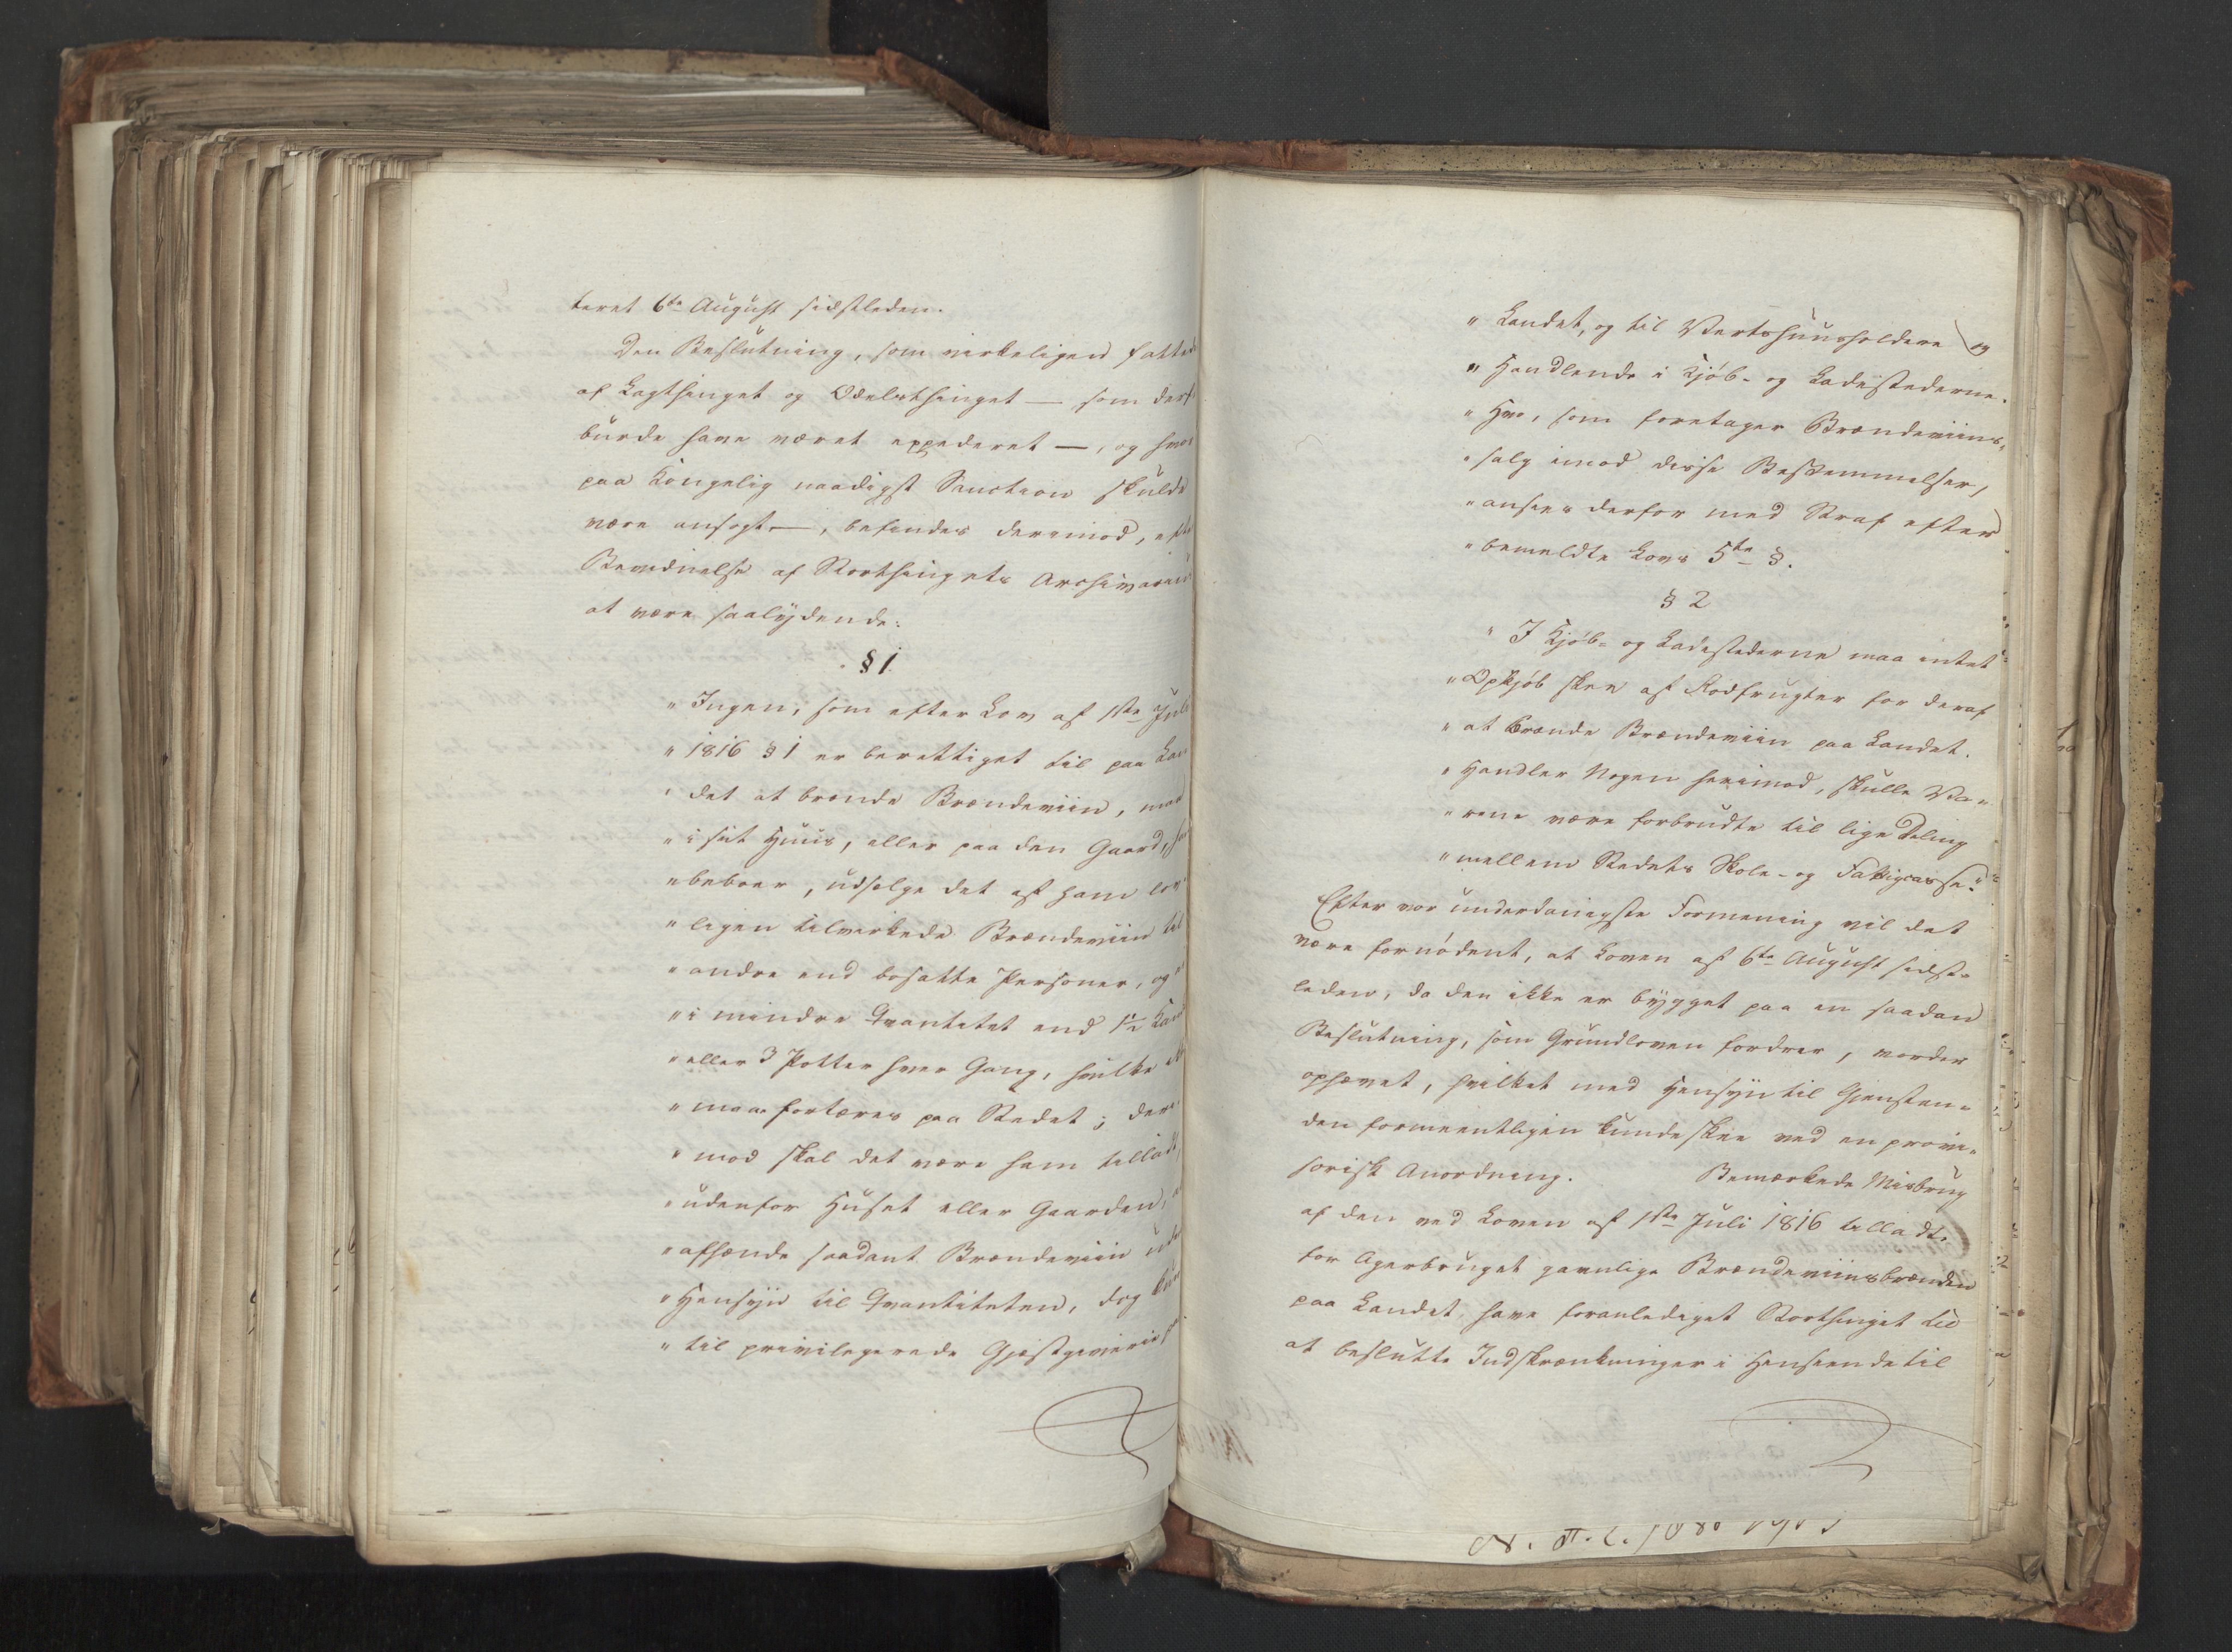 teret 6te August sidstleden.
Den Beslutning, som virkeligen fattedes
af Lagthinget og Odelsthinget — som derfor
burde have været expederet —, og hvor-
paa Kongelig naadigst Sanction skulde
være ansøgt —, befindes derimod, efter
Bevidnelse af Storthingets Archivarius
at være saalydende:
§ 1.
" Ingen, som efter Lov af 1ste Juli
" 1816 § 1 er berettiget til paa Lan-
" det at brænde Brændeviin, maa
" i sit Huus, eller paa den Gaard, han
" beboer, udsælge det af ham lov-
" ligen tilvirkede Brændeviin til
" andre end bosatte Personer, og ei
" i mindre Qvantitet end 1½ Kande
" eller 3 Potter hver Gang, hvilke ei
" maa fortæres paa Stedet; deri-
" mod skal det være ham tilladt,
" udenfor Huset eller Gaarden, at
" afhænde saadant Brændeviin uden
" Hensyn til Qvantiteten, dog kun
" til privilegerede Gjæstgivere paa
" Landet, og til Vertshuusholdere og
" Handlende i Kjøb- og Ladestederne.
" Hvo, som foretager Brændeviins-
" salg imod disse Bestemmelser,
" ansees derfor med Straf efter
" bemeldte Lovs 5te §.
§ 2
" I Kjøb- og Ladestederne maa intet
" Opkjøb skee af Rodfrugter for deraf
" at brænde Brændeviin paa Landet.
" Handler Nogen herimod, skulle Va-
" rene være forbrudte til lige Deling
" mellem Stedets Skole- og Fattigcasse."
Efter vor underdanigste Formening vil det
være fornødent, at Loven af 6te August sidst-
leden, da den ikke er bygget paa en saadan
Beslutning, som Grundloven fordrer, vorder
ophævet, hvilket med Hensyn til Gjensten-
den formeentligen kunde skee ved en provi-
sorisk Anordning. Bemærkede Misbrug
af den ved Loven af 1ste Juli 1816 tilladte
for Agerbruget gavnlige Brændeviinsbrænden
paa Landet, have foranlediget Storthinget til
at beslutte Indskrænkninger i Henseende til